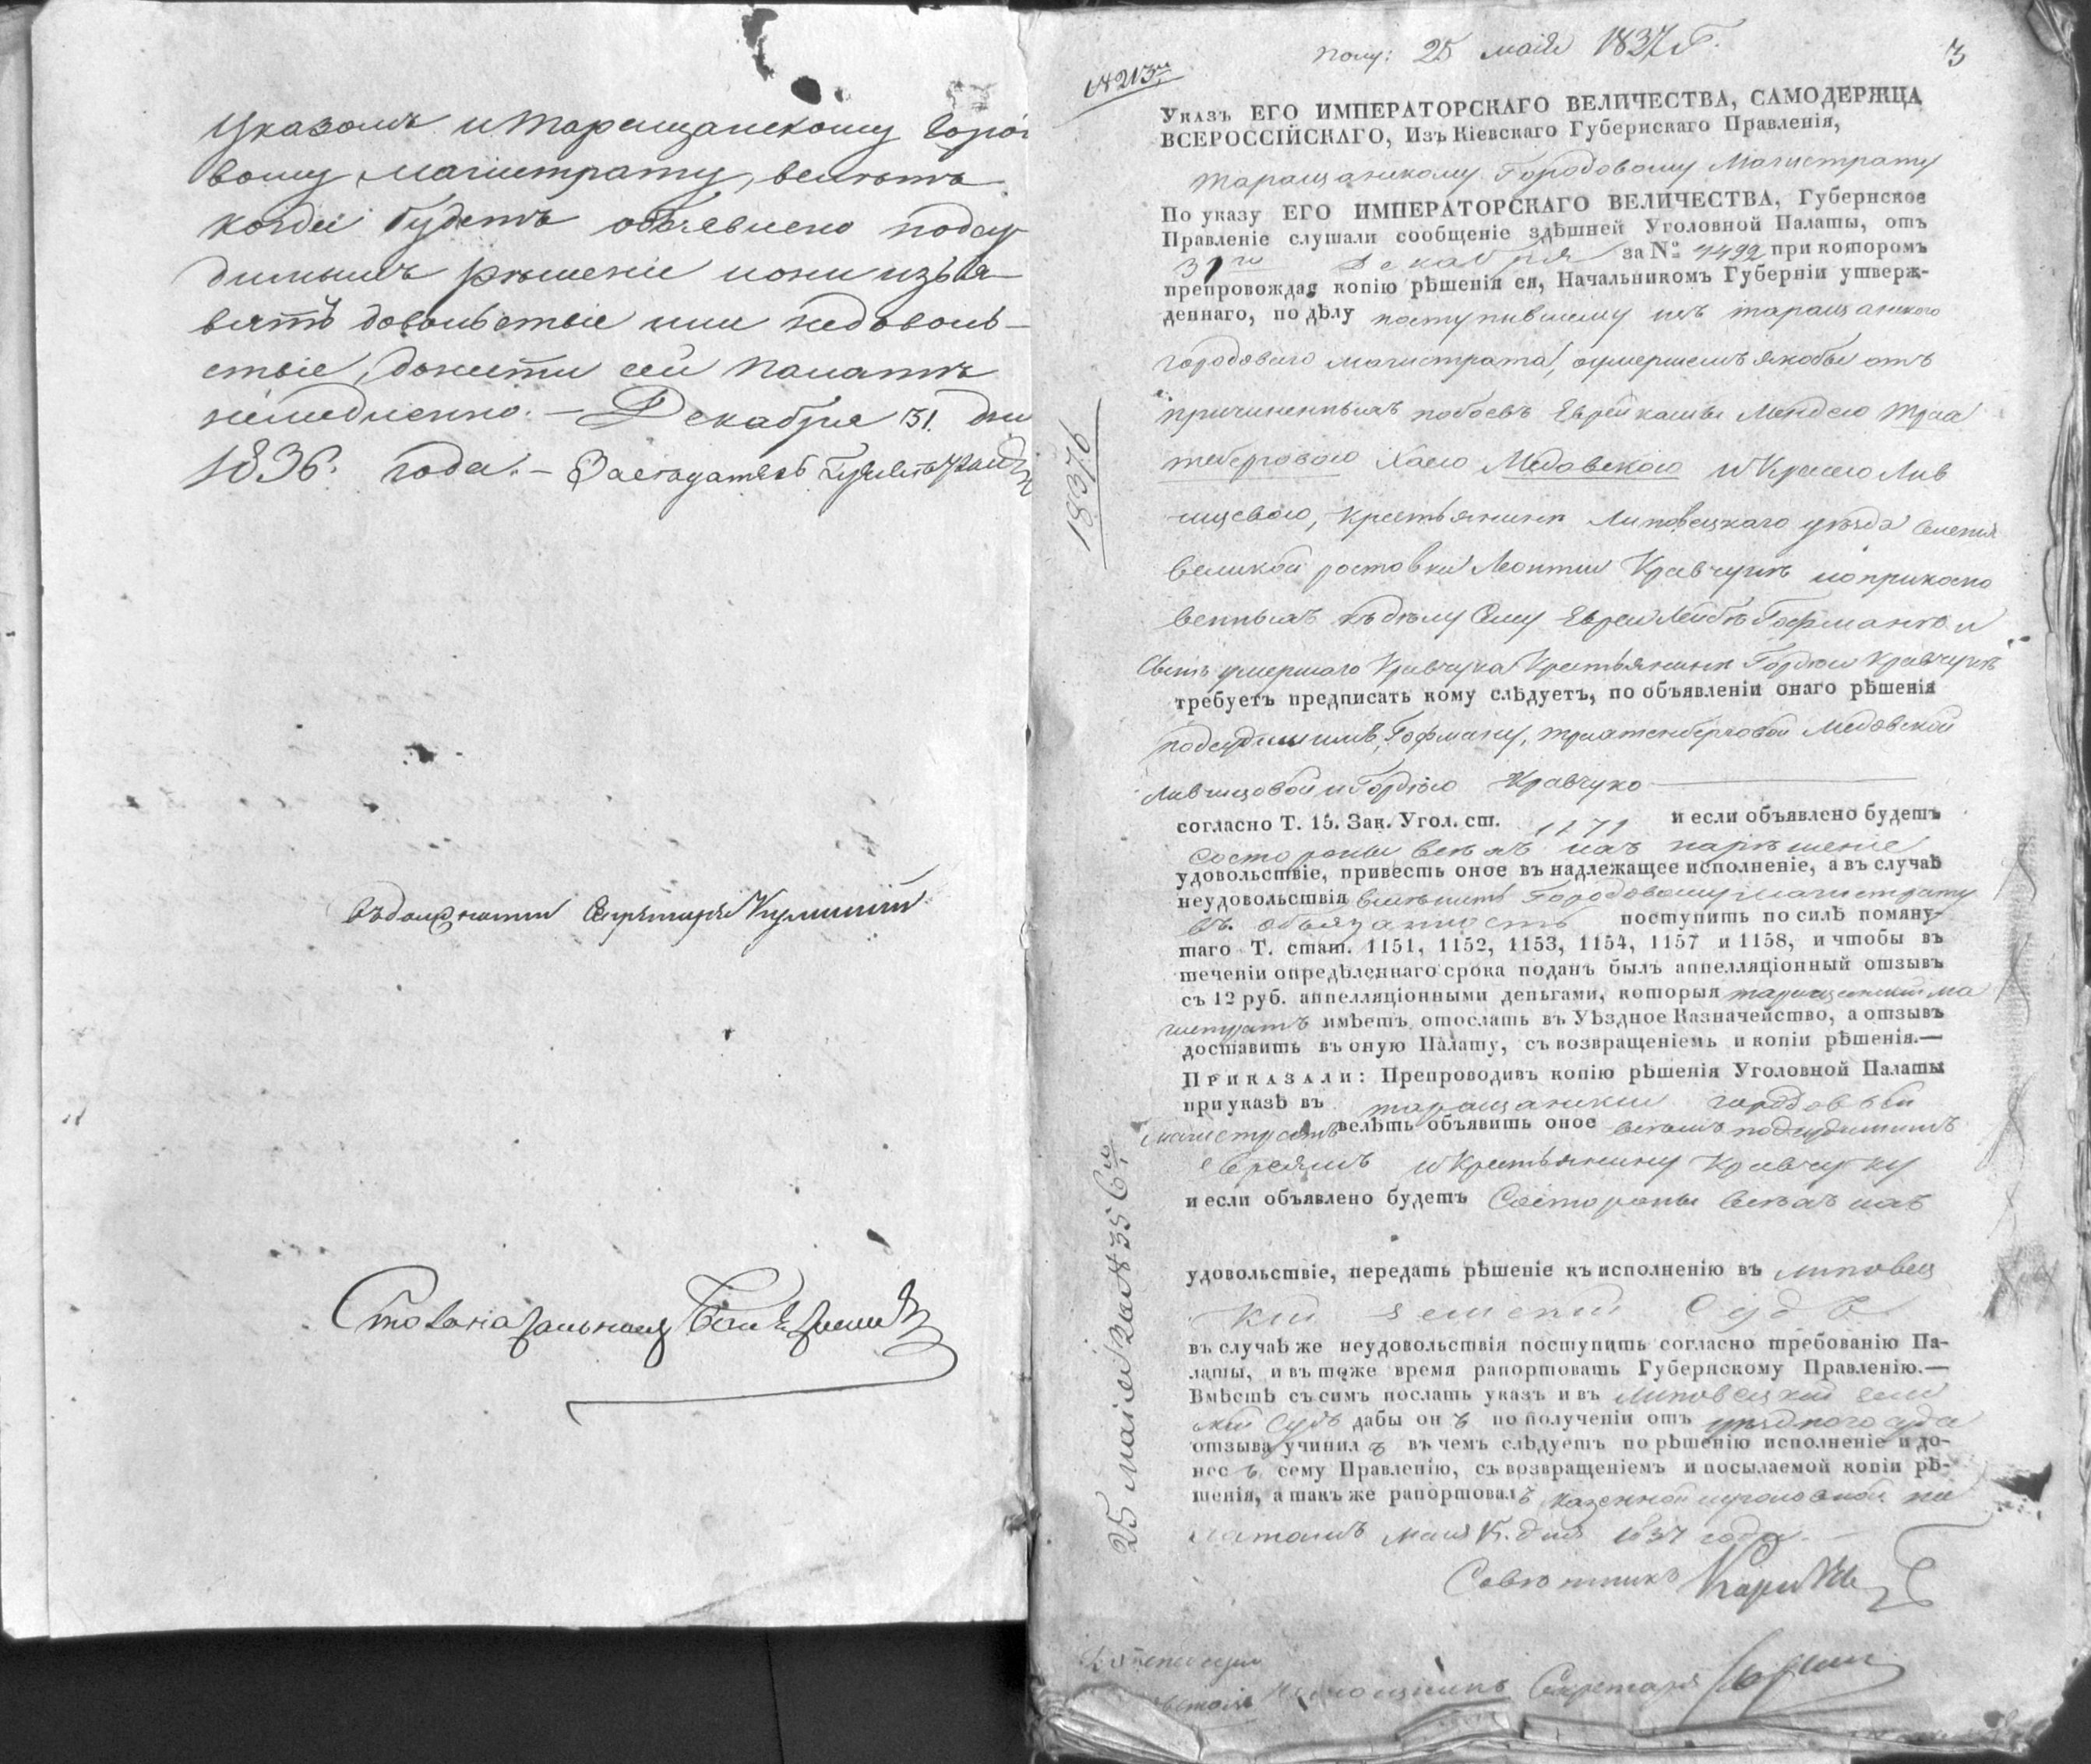 Указомъ и Таращанскому Горо-
вому Магистрату, велѣть
когда будетъ объявлено подсу-
димымъ рѣшеніе и они изъя-
вятъ довольствіе или недоволь-
ствіе, донести сей Палатѣ
немедленно. — Декабря 31. дня
1836. года. — Засѣдатель
въ должности Секретаря
Столоначальникъ
Полу: 25 мая 1837 Г.
3
№ 213
Указъ ЕГО ИМПЕРАТОРСКАГО ВЕЛИЧЕСТВА, САМОДЕРЖЦА
ВСЕРОССІЙСКАГО, Изъ Кіевскаго Губернскаго Правленія,
Таращанскому Городовому Магистрату
По указу ЕГО ИМПЕРАТОРСКАГО ВЕЛИЧЕСТВА, Губернское
Правленіе слушали сообщеніе здѣшней Уголовной Палаты, отъ
31го Декабря за № 4492 при которомъ
препровождая копію рѣшенія ея, Начальникомъ Губерніи утверж-
деннаго, по дѣлу поступившему изъ таращанскаго
городоваго магистрата, о умершемъ якобы отъ
причиненныхъ побоевъ Еврейками
Хаею Медовскою и
крестьянинѣ Липовецкаго уѣзда селенія
великой ростовки Леонтіи Кравчукѣ и о прикосно
венныхъ къ дѣлу сему Евреи Лейбѣ Гофманѣ и
умершаго Кравчука Крестьянинѣ Гордѣи Кравчукѣ
требуетъ предписать кому слѣдуетъ, по объявленіи онаго рѣшенія
подсудимымъ, Гофману, Медовской
Лившицовой и Гордѣю Кравчуко
согласно Т. 15. Зак. Угол. ст. 1171 и если объявлено будетъ
со стороны всѣхъ ихъ на рѣшеніе
удовольствіе, привесть оное въ надлежащее исполненіе, а въ случаѣ
неудовольствія Городовому Магистрату
въ обязанность поступить по силѣ помяну-
таго Т. стат. 1151, 1152, 1153, 1154, 1157 и 1158, и чтобы въ
теченіи опредѣленнаго срока поданъ былъ аппелляціонный отзывъ
съ 12 руб. аппелляціонными деньгами, которыя таращанскій ма
гистратъ имѣетъ отослать въ Уѣздное Казначейство, а отзывъ
доставить въ оную Палату, съ возвращеніемъ и копіи рѣшенія.—
Приказали: Препроводивъ копію рѣшенія Уголовной Палаты
при указѣ въ таращанскій городовый
магистратъ велѣть объявить оное всѣмъ подсудимымъ
евреямъ и Крестьянину Кравчуку
и если объявлено будетъ со стороны всѣхъ ихъ
удовольствіе, передать рѣшеніе къ исполненію въ липовец
кій земскій Судъ
въ случаѣ же неудовольствія поступить согласно требованію Па-
латы, и въ тоже время рапортовать Губернскому Правленію.—
Вмѣстѣ съ симъ послать указъ и въ Липовецкій зем
скій Судъ дабы онъ по полученіи отъ уѣзднаго суда
отзыва учинилъ въ чемъ слѣдуетъ по рѣшенію исполненіе и до-
несъ сему Правленію, съ возвращеніемъ и посылаемой копіи рѣ-
шенія, а такъ же рапортовалъ казенной и уголовной па
латамъ мая дня 1837 года.
Совѣтникъ
Секретаря
1837
25 маія